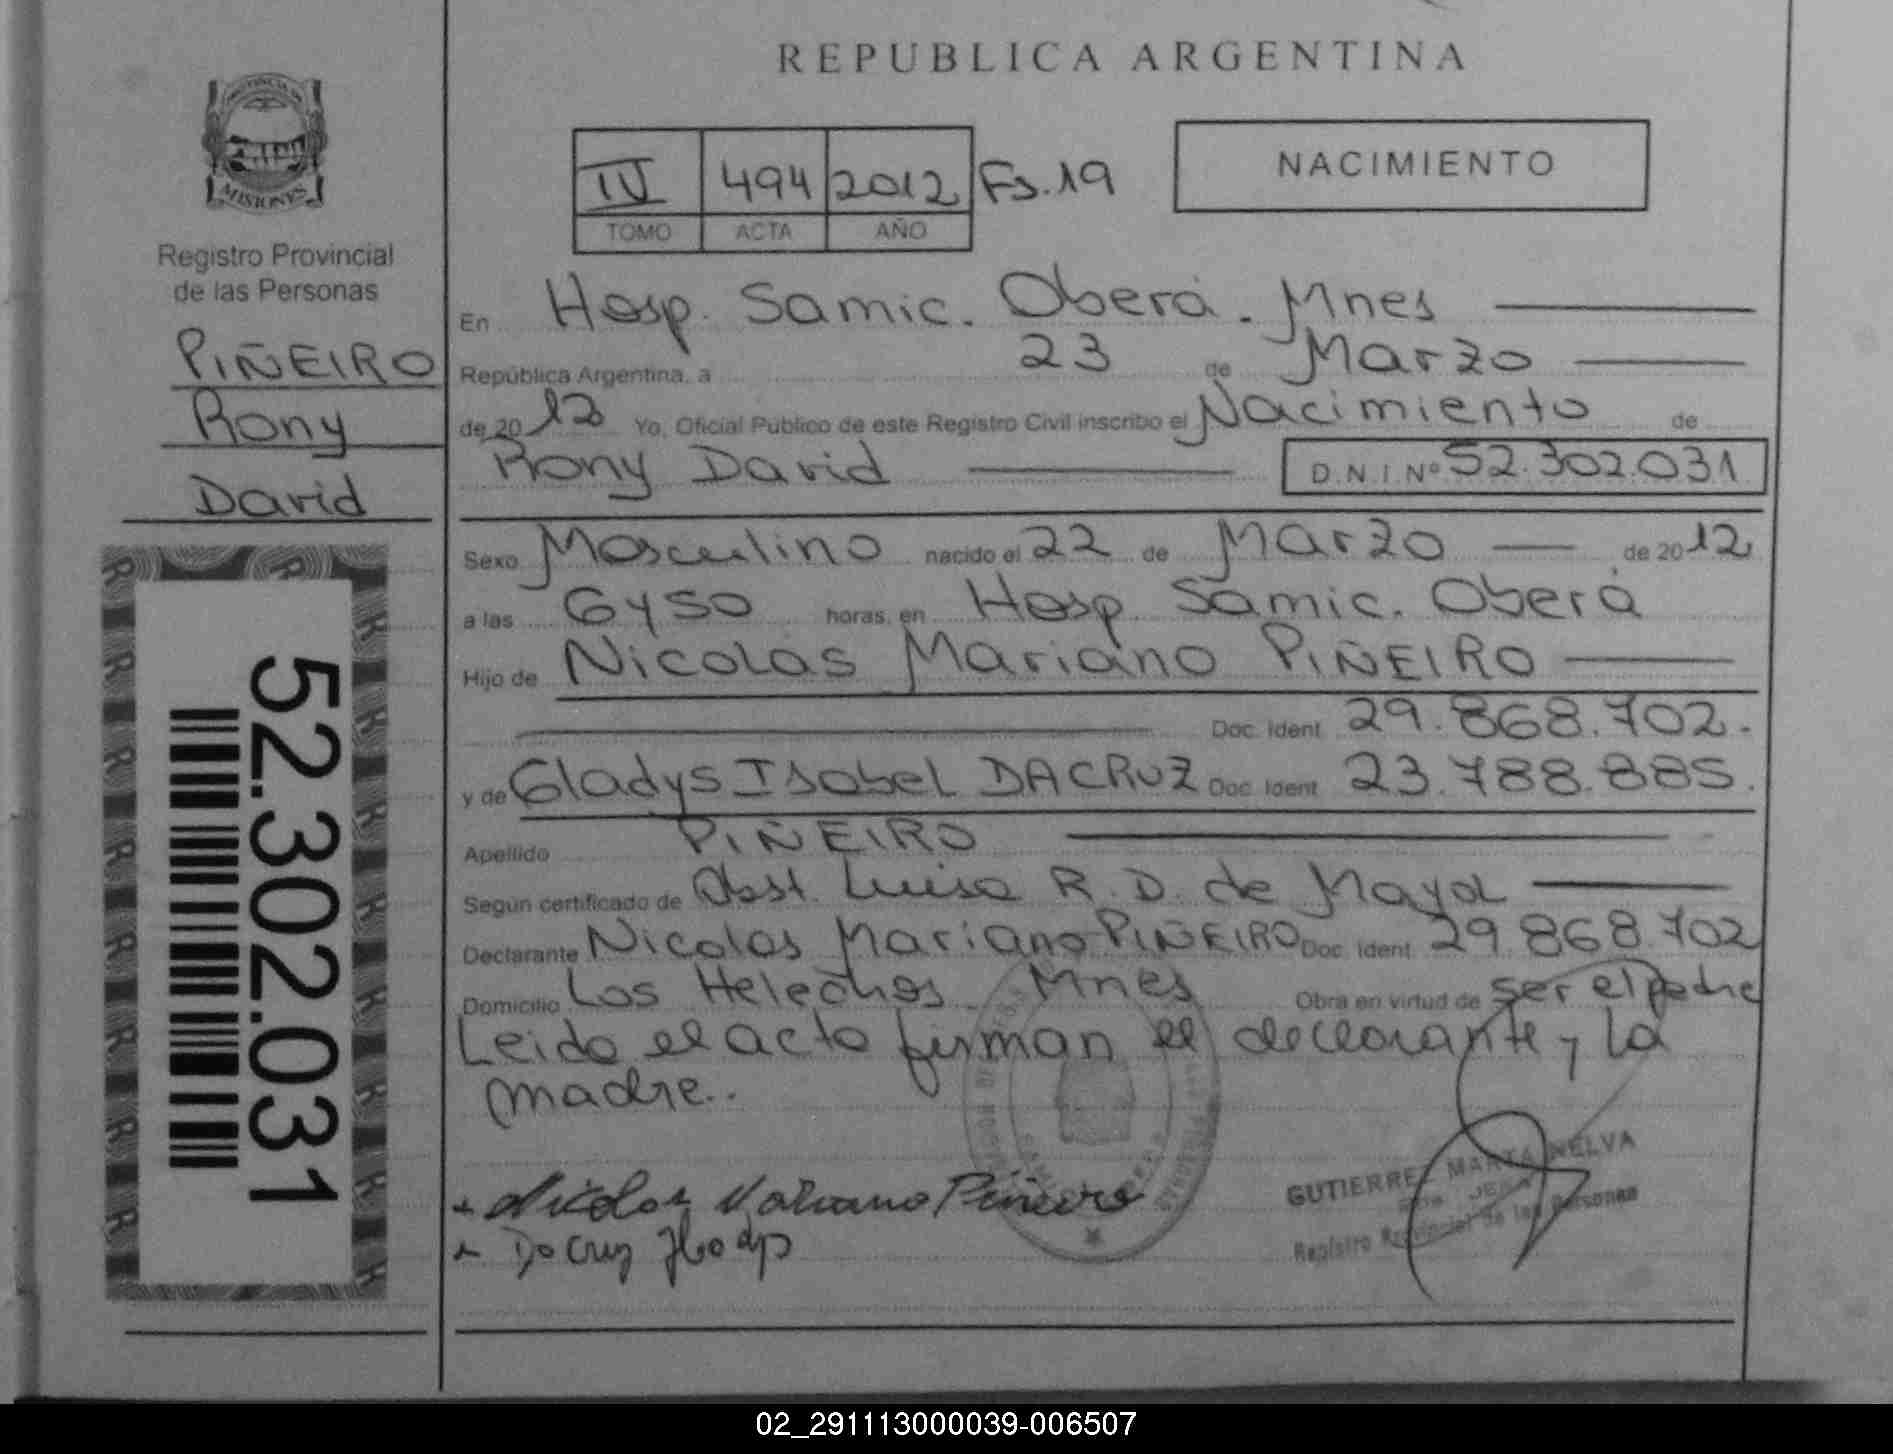 REPUBLICA ARGENTINA
PROVINCIA DE
MISIONES
Registro Provincial
de las Personas
PIÑEIRO
Rony
David
52.302.031
IV 494 2012 Fs.19
TOMO ACTA AÑO
NACIMIENTO
En Hosp. Samic. Oberá. Mnes
República Argentina, a 23 de Marzo
de 2012 Yo, Oficial Público de este Registro Civil inscribo el Nacimiento de
Rony David D.N.I.Nº 52.302.031
Sexo Masculino nacido el 22 de Marzo de 2012
a las 6y50 horas, en Hosp Samic. Oberá
Hijo de Nicolas Mariano PIÑEIRO
Doc. Ident 29.868.702.
y de Gladys Isabel DACRUZ Doc. Ident 23.788.885.
Apellido PIÑEIRO
Según certificado de Obst. Luisa R. D. de Mayol
Declarante Nicolas Mariano PIÑEIRO Doc. Ident. 29.868.702
Domicilio Los Helechos. Mnes Obra en virtud de ser el padre
Leido el acto firman el declarante y la
madre..
Nicolas Mariano Piñeiro
Da Cruz
GUTIERREZ MARTA NELVA
Registro Provincial de las Personas
02_291113000039-006507